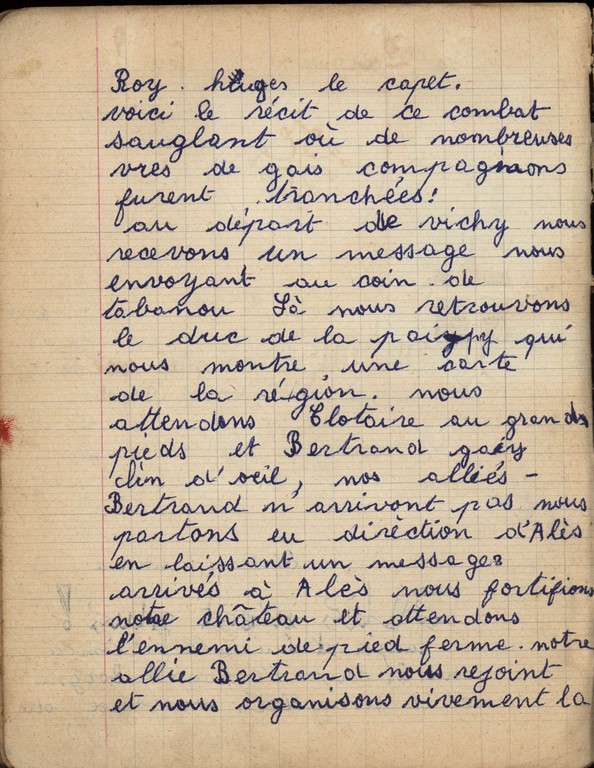 Roy. huges le capet.
voici le récit de ce combat
sauglant où de nombreuses
vres de gais compagnons
furent tranchées!
au départ de vichy nous
recevons un message nous
envoyant au coin. de
tabanou Là nous retrouvons
le duc de la paiypy qui
nous montre une carte
de la région. nous
attendons Clotaire au grands
pieds et Bertrand gaiy
clin d'oeil, nos alliés -
Bertrand n'arrivont pas nous
partons en dirèction d'Alès
en laissant un message
arrivés à Alès nous fortifions
notre château et attendons
l'ennemi de pied ferme. notre
allie Bertrand nous rejoint
et nous organisons vivement la